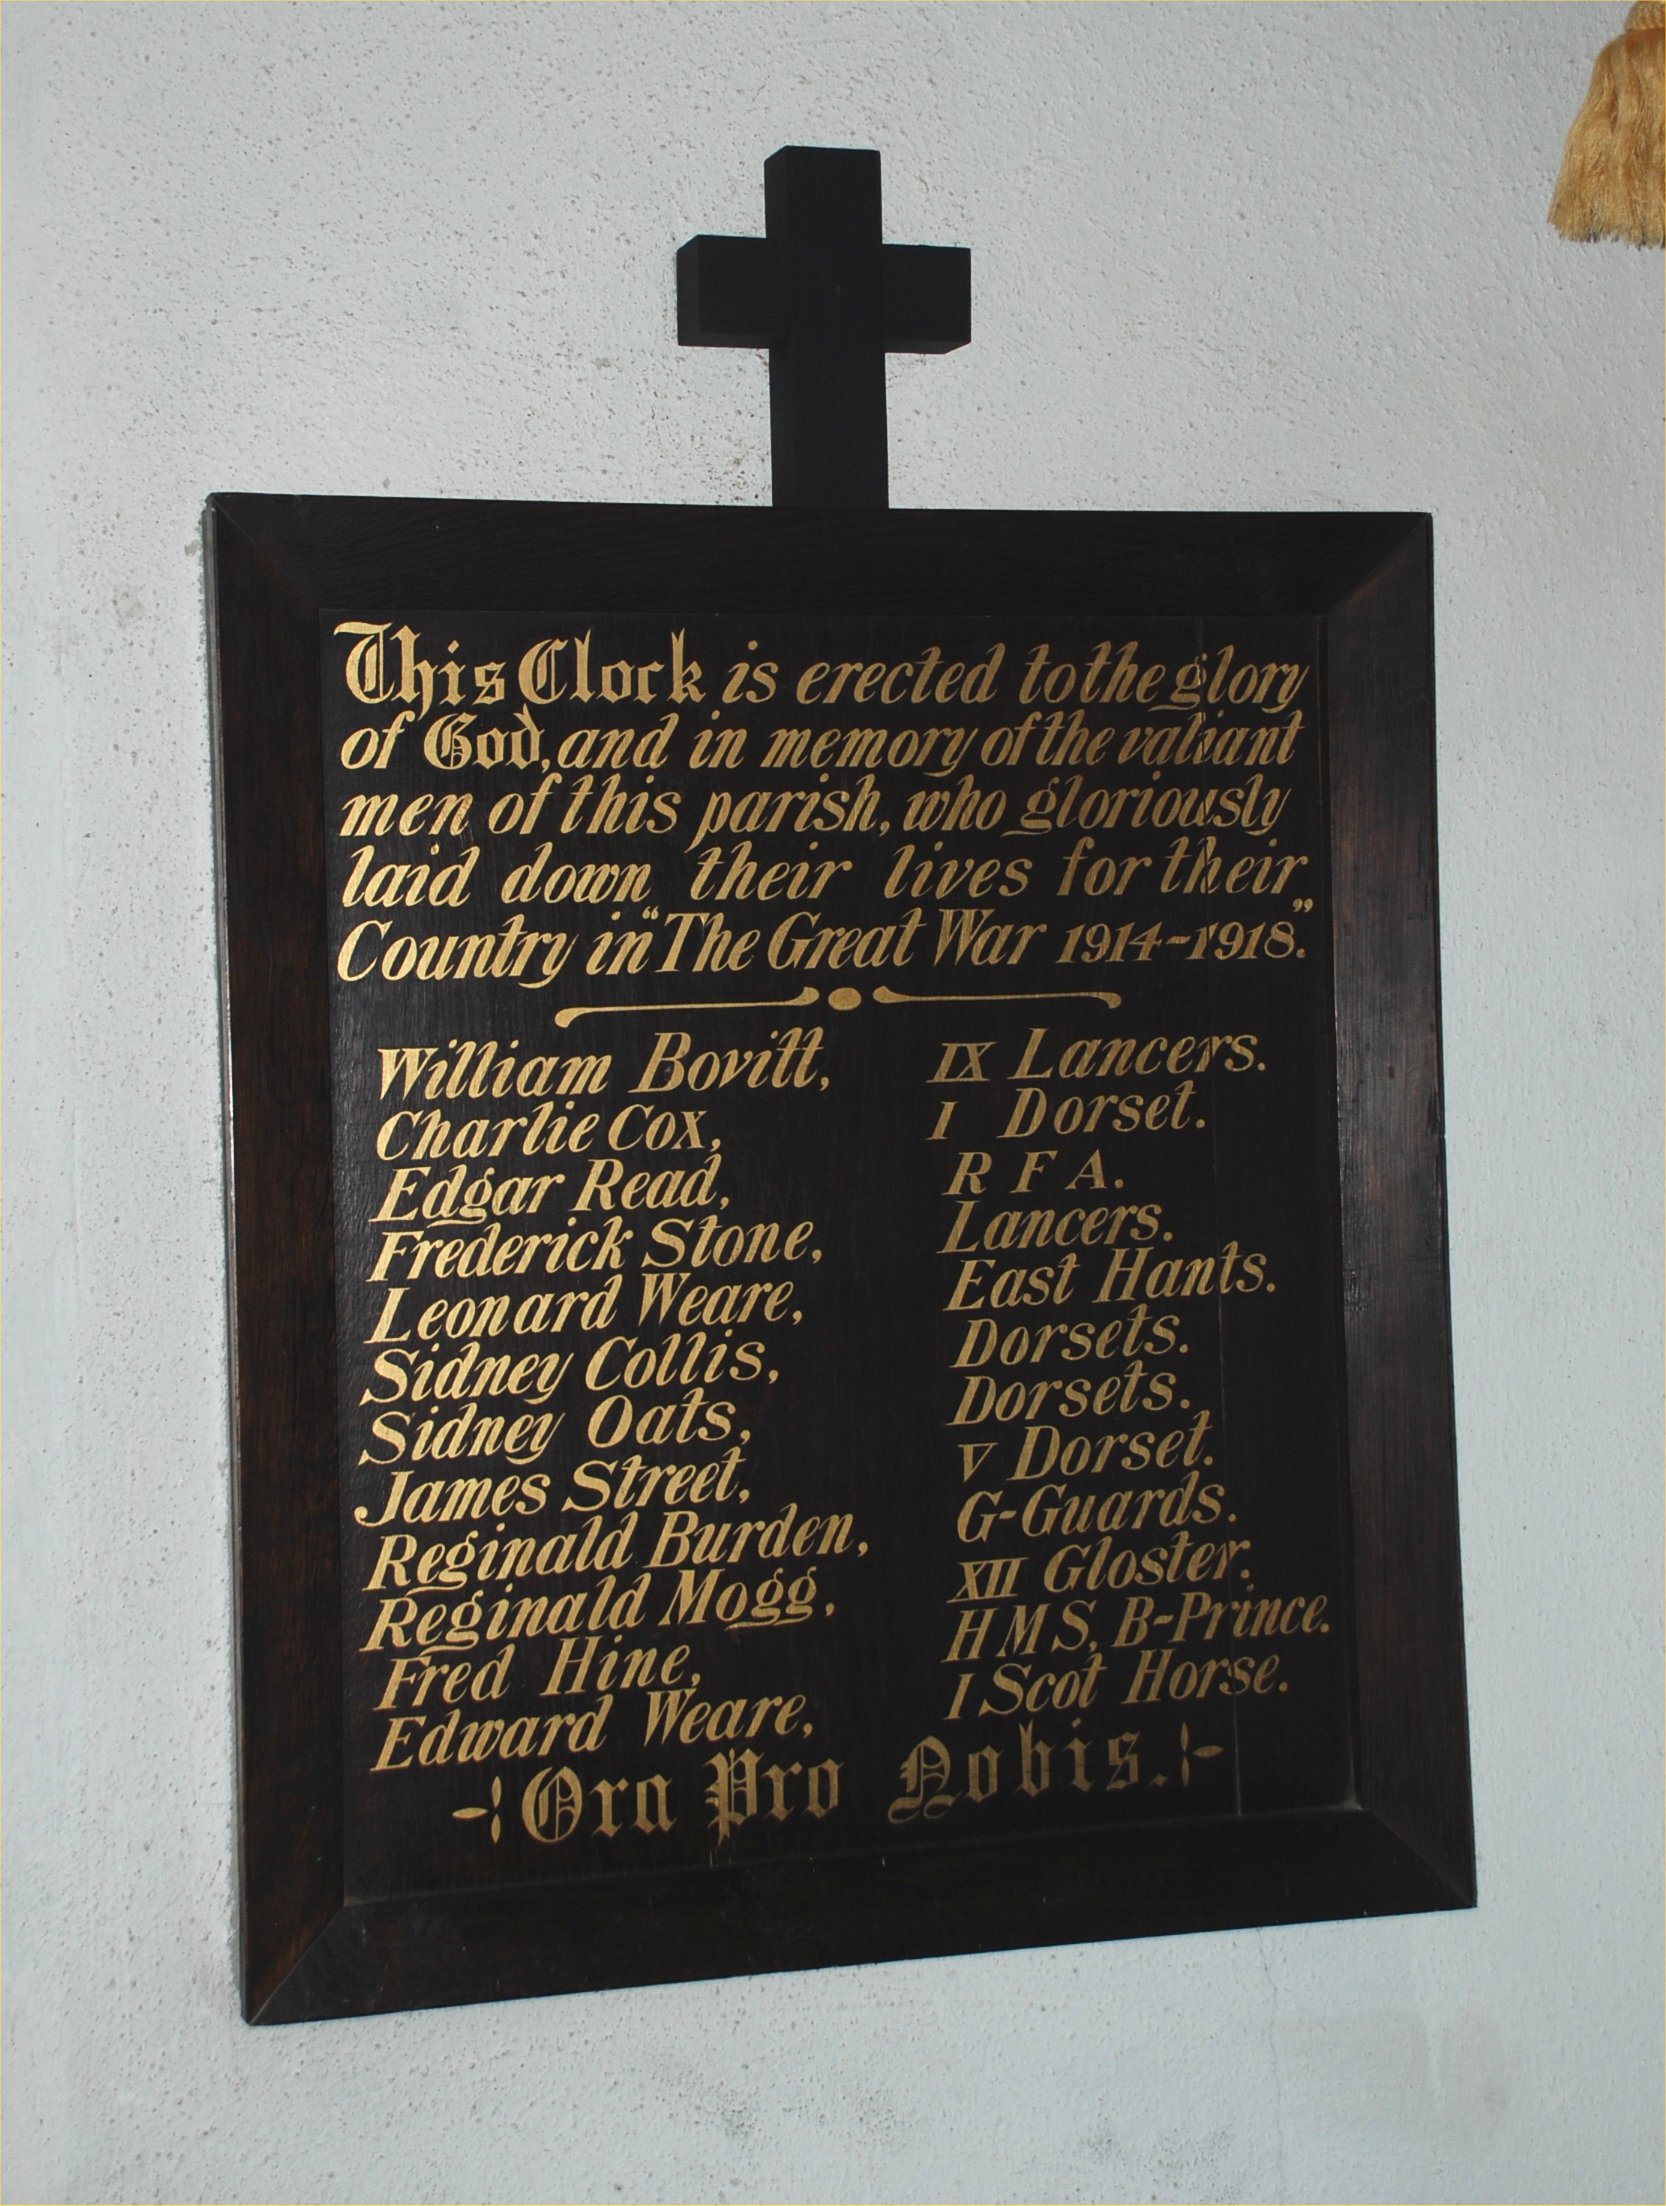 This Clock is erected to the glory
of God, and in memory of the valiant
men of this parish, who gloriously
laid down their lives for their
Country in "The Great War 1914-1918."
William Bovitt, IX Lancers.
Charlie Cox, I Dorset.
Edgar Read, R F A.
Frederick Stone, Lancers.
Leonard Weare, East Hants.
Sidney Collis, Dorsets.
Sidney Oats, Dorsets.
James Street, V Dorset.
Reginald Burden, G-Guards.
Reginald Mogg, XII Gloster.
Fred Hine, H M S, B-Prince.
Edward Weare, I Scot Horse.
Ora Pro Nobis.